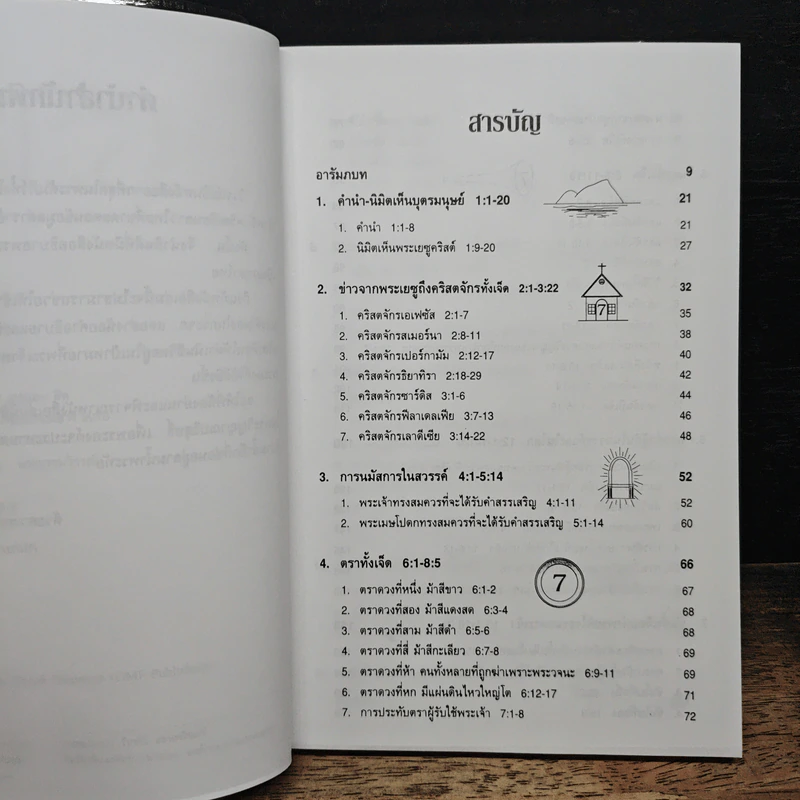 สารบัญ
อารัมภบท 9
1. คำนำ-นิมิตเห็นบุตรมนุษย์ 1:1-20 21
1. คำนำ 1:1-8 21
2. นิมิตเห็นพระเยซูคริสต์ 1:9-20 27
2. ข่าวจากพระเยซูถึงคริสตจักรทั้งเจ็ด 2:1-3:22 32
7
1. คริสตจักรเอเฟซัส 2:1-7 35
2. คริสตจักรสเมอร์นา 2:8-11 38
3. คริสตจักรเปอร์กามัม 2:12-17 40
4. คริสตจักรธิยาทิรา 2:18-29 42
5. คริสตจักรซาร์ดิส 3:1-6 44
6. คริสตจักรฟีลาเดลเฟีย 3:7-13 46
7. คริสตจักรเลาดีเซีย 3:14-22 48
3. การนมัสการในสวรรค์ 4:1-5:14 52
1. พระเจ้าทรงสมควรที่จะได้รับคำสรรเสริญ 4:1-11 52
2. พระเมษโปดกทรงสมควรที่จะได้รับคำสรรเสริญ 5:1-14 60
4. ตราทั้งเจ็ด 6:1-8:5 66
7
1. ตราดวงที่หนึ่ง ม้าสีขาว 6:1-2 67
2. ตราดวงที่สอง ม้าสีแดงสด 6:3-4 68
3. ตราดวงที่สาม ม้าสีดำ 6:5-6 68
4. ตราดวงที่สี่ ม้าสีกะเลียว 6:7-8 69
5. ตราดวงที่ห้า คนทั้งหลายที่ถูกฆ่าเพราะพระวจนะ 6:9-11 69
6. ตราดวงที่หก มีแผ่นดินไหวใหญ่โต 6:12-17 71
7. การประทับตราผู้รับใช้พระเจ้า 7:1-8 72